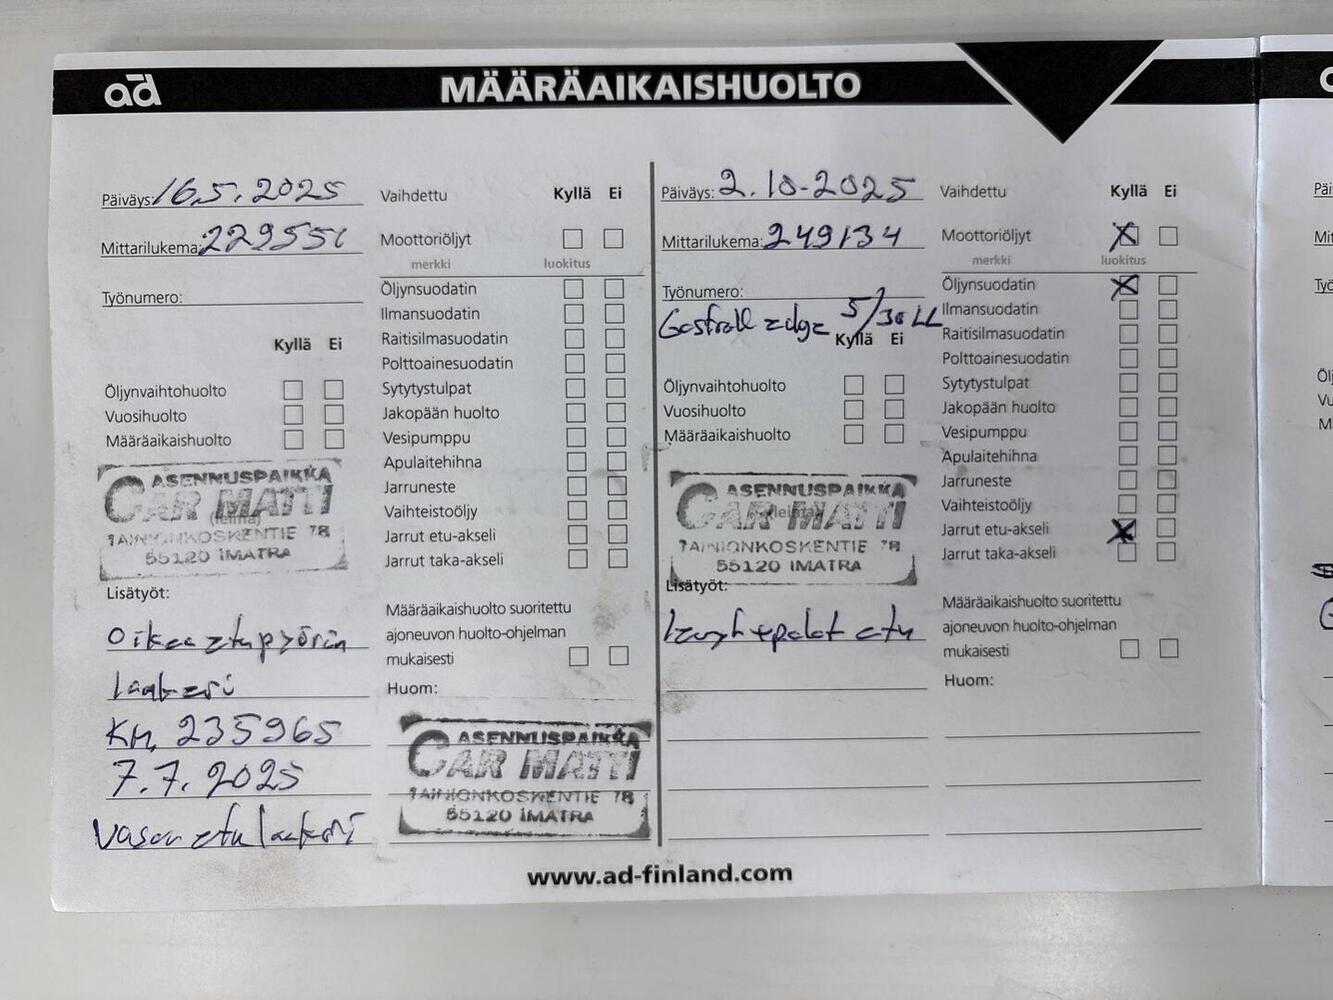 ad
MÄÄRÄAIKAISHUOLTO
Päiväys: 16.5.2025
Mittarilukema: 229551
Työnumero:
Kyllä Ei
Öljynvaihtohuolto
Vuosihuolto
Määräaikaishuolto
ASENNUSPAIKKA
CAR MATTI
(leima)
TAINIONKOSKENTIE 78
55120 IMATRA
Lisätyöt:
Oikea etupyörän
laakeri
KM, 235965
7.7.2025
Vasen etu laakeri
Vaihdettu Kyllä Ei
Moottoriöljyt
merkki luokitus
Öljynsuodatin
Ilmansuodatin
Raitisilmasuodatin
Polttoainesuodatin
Sytytystulpat
Jakopään huolto
Vesipumppu
Apulaitehihna
Jarruneste
Vaihteistoöljy
Jarrut etu-akseli
Jarrut taka-akseli
Määräaikaishuolto suoritettu
ajoneuvon huolto-ohjelman
mukaisesti
Huom:
ASENNUSPAIKKA
CAR MATTI
TAINIONKOSKENTIE 78
55120 IMATRA
Päiväys: 2.10-2025
Mittarilukema: 249134
Työnumero:
edge 5/30 LL
Kyllä Ei
Öljynvaihtohuolto
Vuosihuolto
Määräaikaishuolto
ASENNUSPAIKKA
CAR MATTI
leima
TAINIONKOSKENTIE 78
55120 IMATRA
Lisätyöt:
etu
Vaihdettu Kyllä Ei
Moottoriöljyt X
merkki luokitus
Öljynsuodatin X
Ilmansuodatin
Raitisilmasuodatin
Polttoainesuodatin
Sytytystulpat
Jakopään huolto
Vesipumppu
Apulaitehihna
Jarruneste
Vaihteistoöljy
Jarrut etu-akseli X
Jarrut taka-akseli
Määräaikaishuolto suoritettu
ajoneuvon huolto-ohjelman
mukaisesti
Huom:
www.ad-finland.com